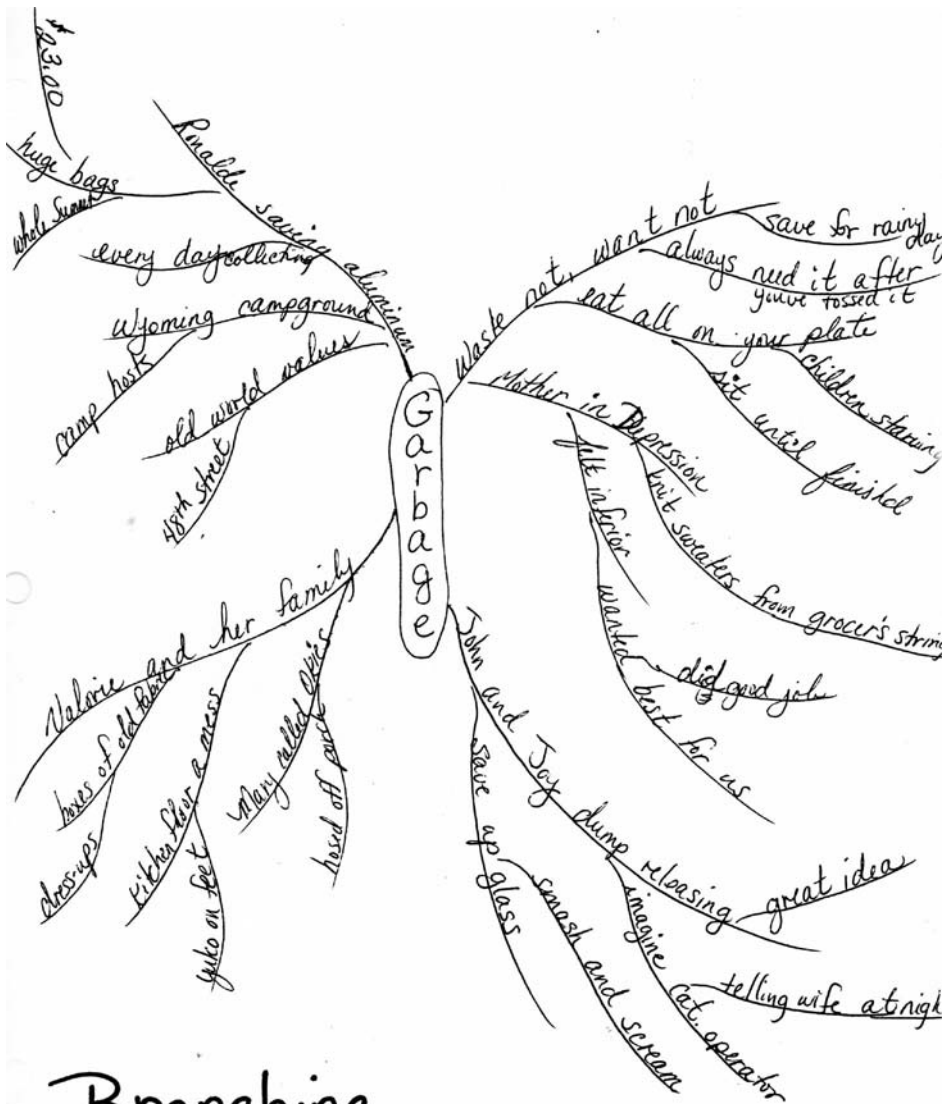 $23.00
huge bags
whole summer
Ronalde saving aluminum
every day collecting
Wyoming campground
camp hosts
old world values
48th street
Garbage
Waste not, want not
save for rainy
day
always need it after
you've tossed it
eat all on your plate
children starving
sit until finished
Mother in Depression
felt inferior
knit sweaters from grocer's string
wanted best for us
did good job
Valorie and her family
boxes of old fabric
dress-ups
kitchen floor a mess
yuko on feet
Many called Okies
hosed off
John and Joy dump releasing
great idea
save up glass
smash and scream
imagine cat. operator
telling wife at nigh
Branching